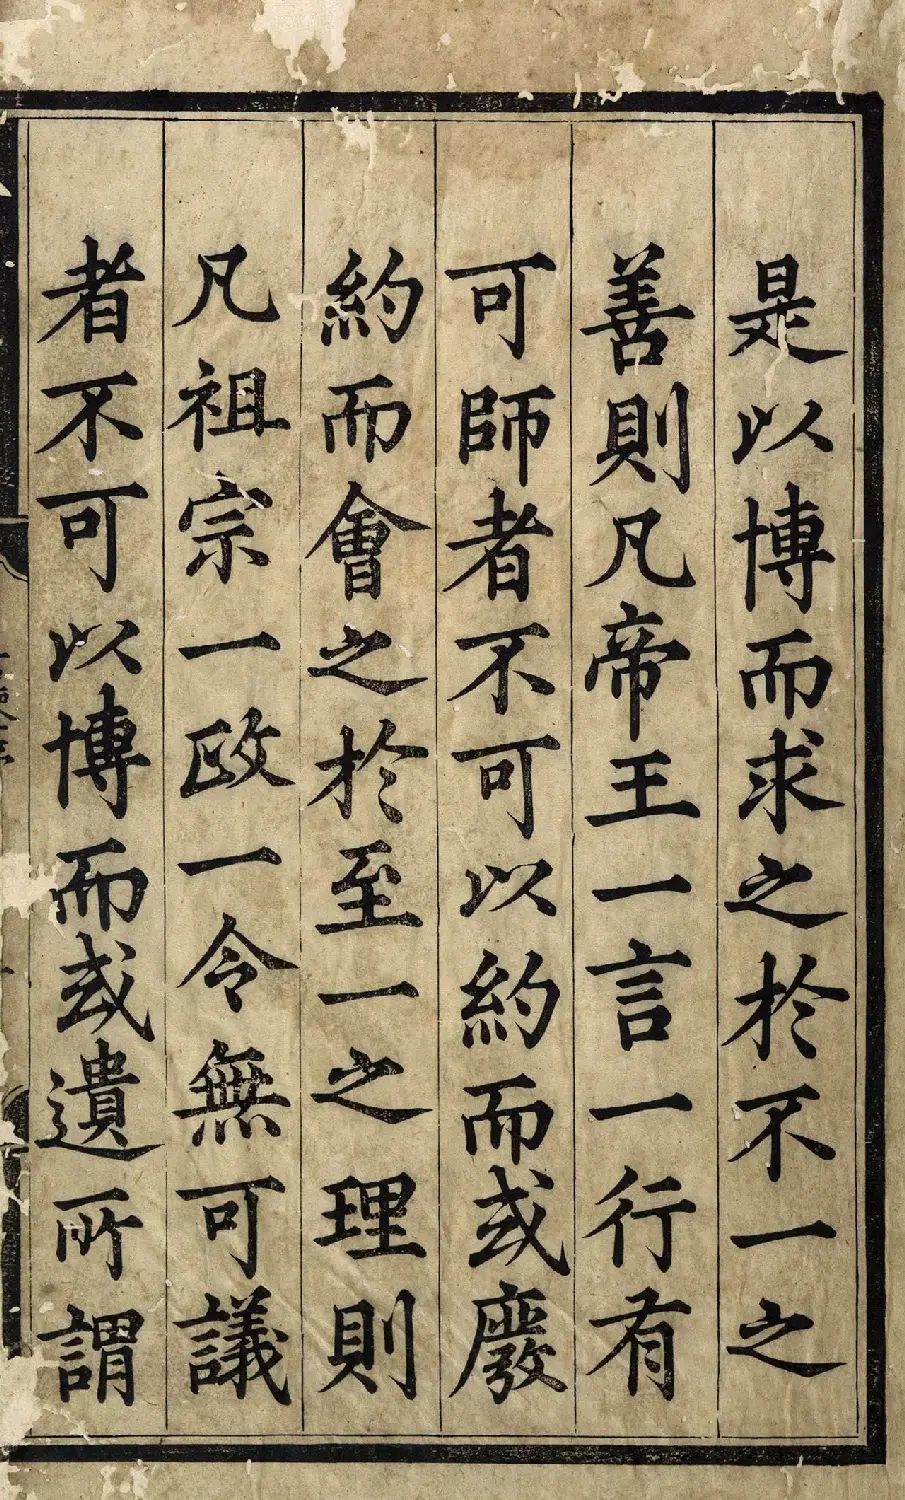 是以博而求之於不一之
善則凡帝王一言一行有
可師者不可以約而或廢
約而會之於至一之理則
凡祖宗一政一令無可議
者不可以博而或遺所謂